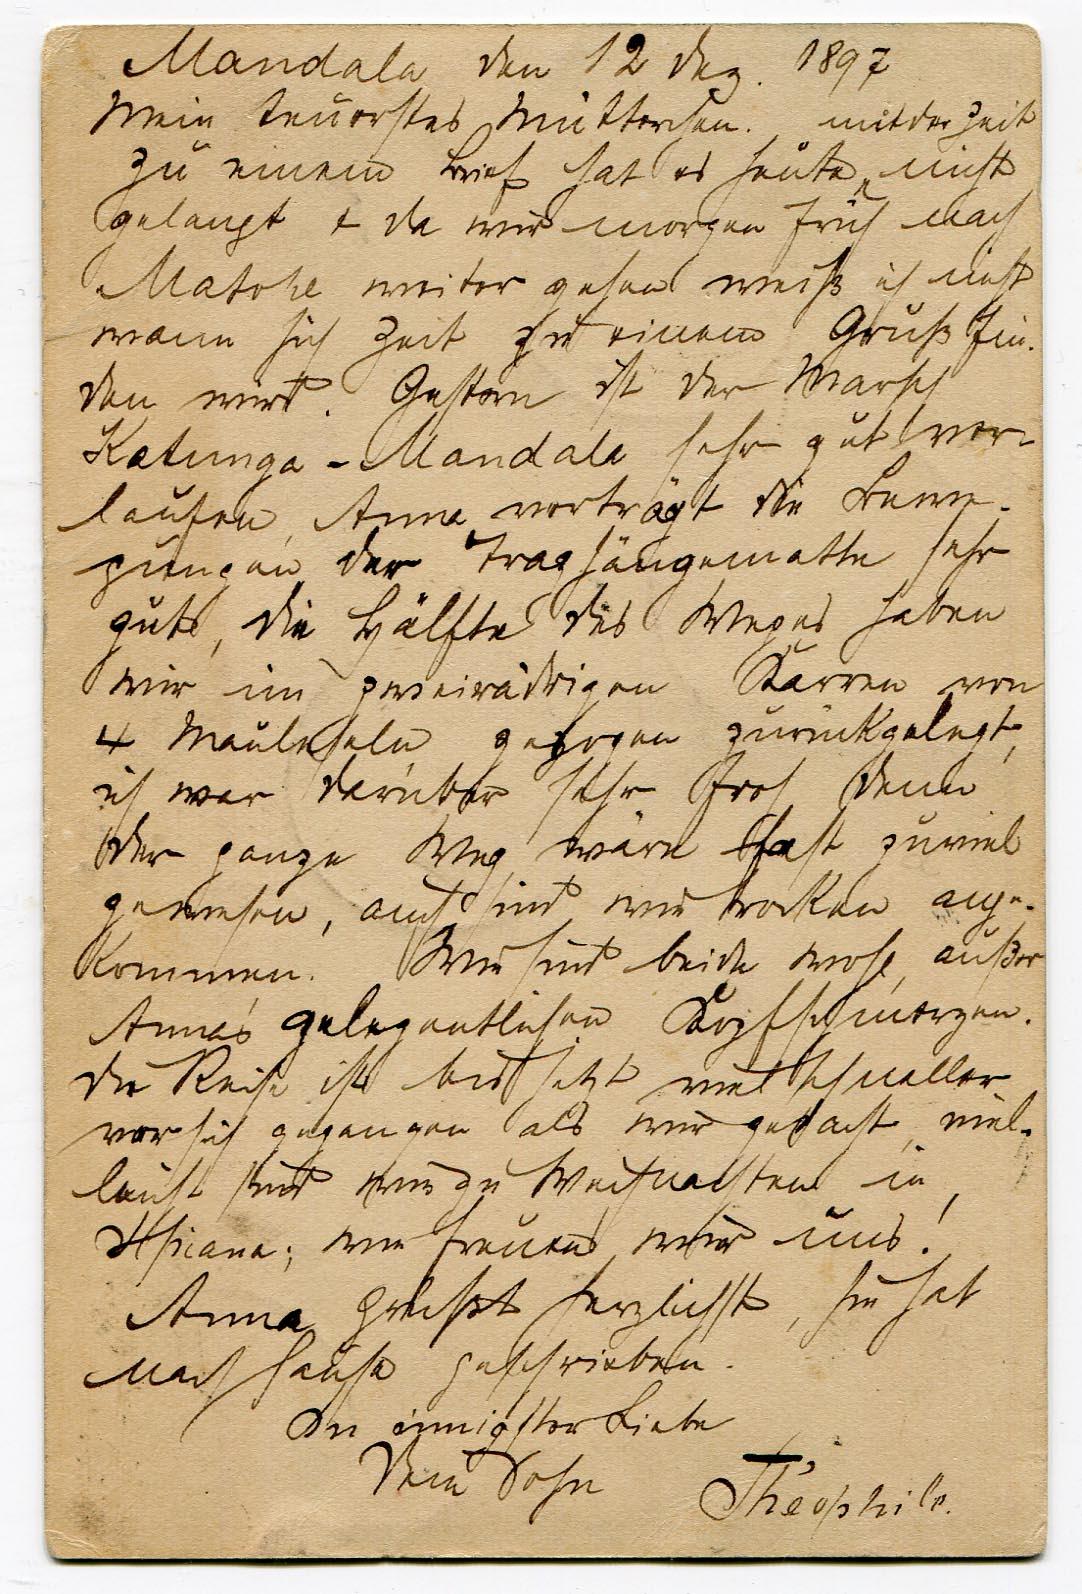 Mandala den 12 Dez. 1897
Mein teuerstes Mütterchen. mit der Zeit
zu einem Brief hat es heute nicht
gelangt + da wir morgen früh nach
Matope weiter gehen weiß ich nicht
wann sich Zeit zu einem Gruß fin-
den wird. Gestern ist der Marsch
Katunga - Mandala sehr gut ver-
laufen, Anna verträgt die Bewe-
gungen der Traghängematte sehr
gut, die Hälfte des Weges haben
wir im zweirädrigen Karren von
4 Mauleseln gezogen zurückgelegt,
ich war darüber sehr froh denn
der ganze Weg wäre fast zuviel
gewesen, auch sind wir trocken ange-
kommen. Wir sind beide wohl, außer
Anna's gelegentlichen Kopfschmerzen.
Die Reise ist bis jetzt viel schneller
vor sich gegangen als wir gedacht, viel-
leicht sind wir zu Weihnachten in
wie freuen wir uns!
Anna grüßt herzlichst, sie hat
nach Hause geschrieben.
In innigster Liebe
Dein Sohn Théophile.